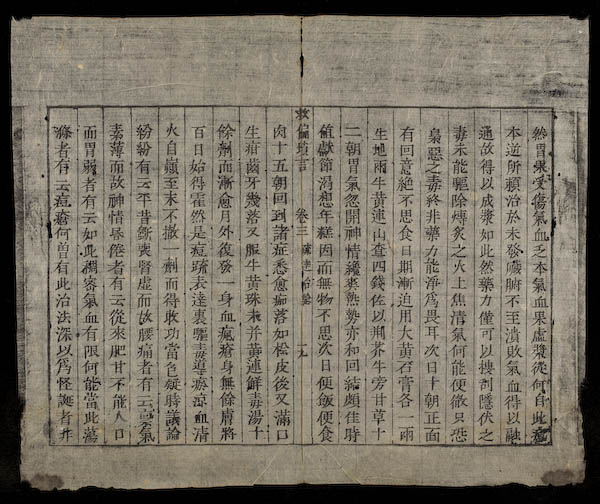 然胃果受傷氣血之本氣血果虛漿從何自此痘
本逆所頼治於未發臟腑不至潰敗氣血得以融
通故得以成漿如此然藥力僅可以搜剔隱伏之
毒未能驅除煿炙之火上焦清氣何能便徹只恐
梟惡之毒終非藥力能淨爲畏耳次日十朝正面
有回意絶不思食日期漸迫用大黃石膏各一兩
生地兩牛黃連山查四錢佐以荆芥牛旁甘草十
二朝胃氣忽開神情纔爽熱勢亦和回結頗佳時
値獻節渴想年糕因而無物不思次日便飯便食
肉十五朝回到諸症悉愈痂落如松皮後又滿口
生疳齒牙幾落又服牛黃珠末并黃連鮮毒湯十
餘劑而漸愈月外復發一身血瘋瘡身無餘膚將
百日始得霍然是痘疏表達裏驅毒導瘀涼血清
火自巔至末不撤一劑而得收功當危疑時議論
紛紛有云平昔斵喪腎虛而故腰痛者有云氣
素薄而故神情辱倦者有云從來肥甘不能入口
而胃弱者有云如此稠密氣血有限何能當此蕩
滌者有云痘瘡何曾有此治法深以爲怪誕者并
救偏瑣言 卷三 治驗 一九